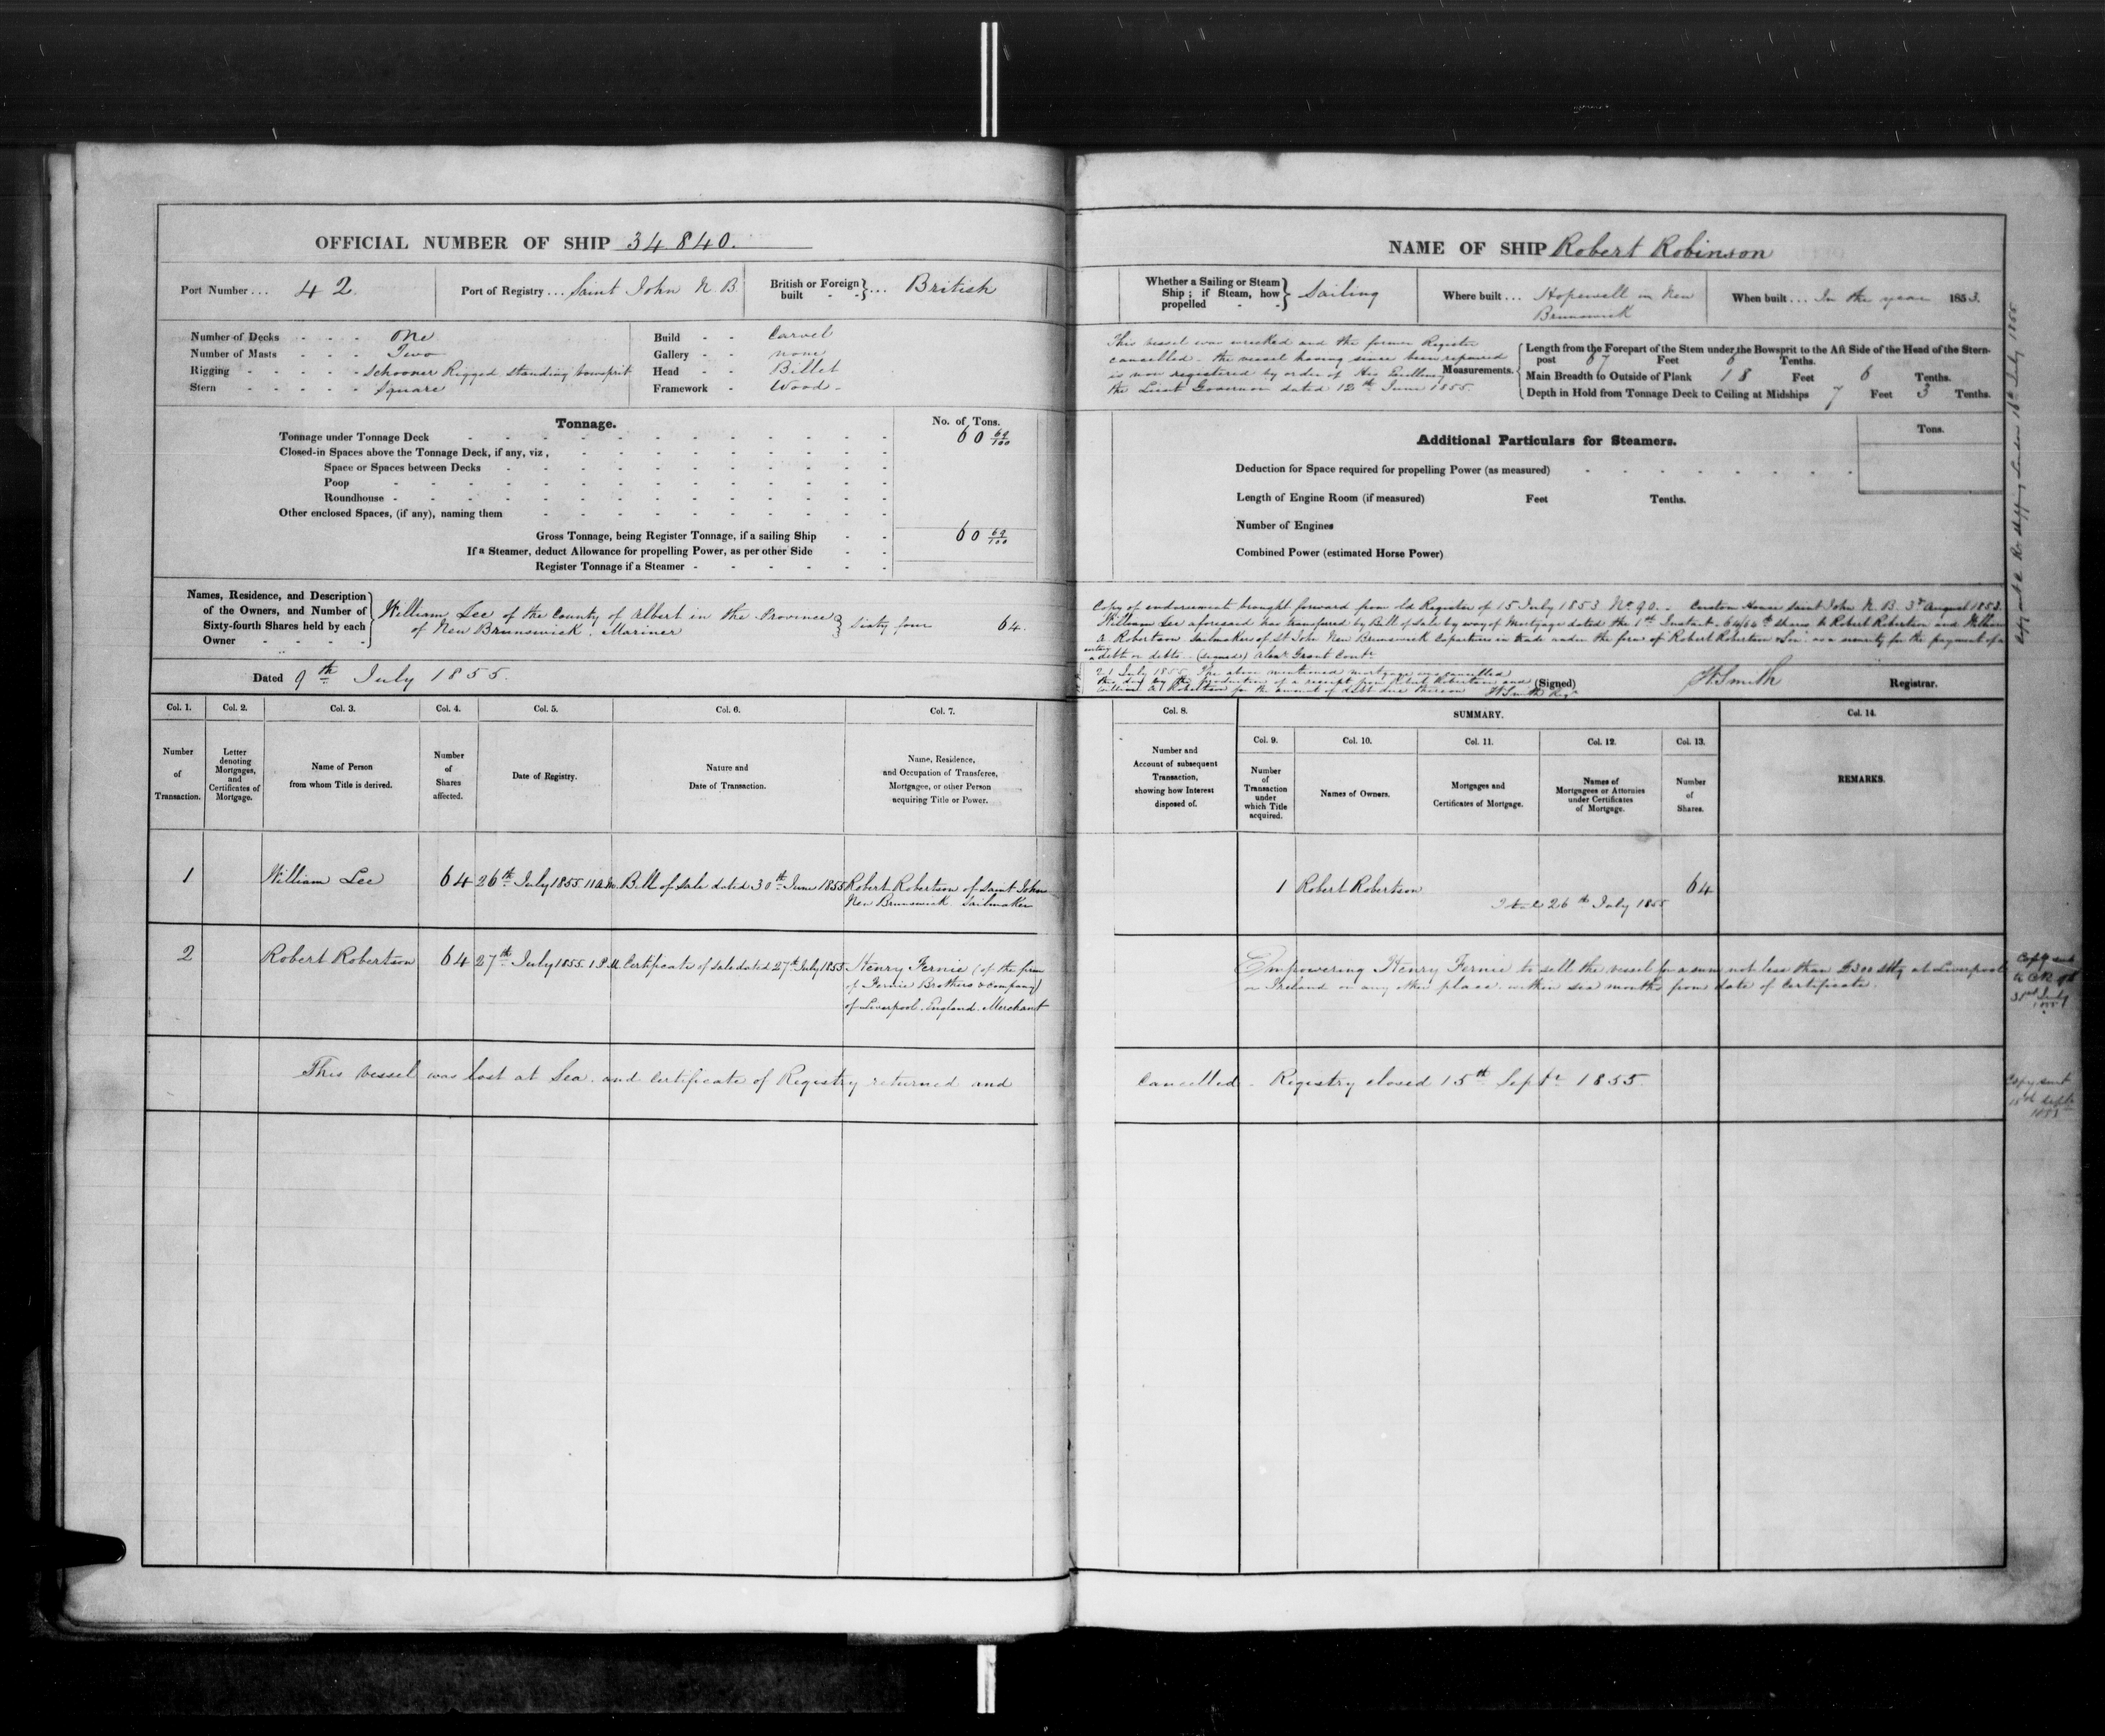 OFFICIAL NUMBER OF SHIP 34840.
Port Number... 42.
Port of Registry... Saint John N.B.
British or Foreign built - - }... British
Number of Decks - - - - One
Number of Masts - - - Two
Rigging - - - - - Schooner Rigged standing bowsprit
Stern - - - - - Square
Build - - Carvel
Gallery - - none
Head - - Billet
Framework - Wood
Tonnage.
No. of Tons.
Tonnage under Tonnage Deck 60 69/100
Closed-in Spaces above the Tonnage Deck, if any, viz,
Space or Spaces between Decks
Poop
Roundhouse
Other enclosed Spaces, (if any), naming them
Gross Tonnage, being Register Tonnage, if a sailing Ship 60 69/100
If a Steamer, deduct Allowance for propelling Power, as per other Side
Register Tonnage if a Steamer
Names, Residence, and Description
of the Owners, and Number of
Sixty-fourth Shares held by each
Owner
William Lee of the County of Albert in the Province
of New Brunswick. Mariner } Sixty four 64.
Dated 9th July 1855.
Col. 1. Col. 2. Col. 3. Col. 4. Col. 5. Col. 6. Col. 7.
Number of Transaction.
Letter denoting Mortgages, and Certificates of Mortgage.
Name of Person from whom Title is derived.
Number of Shares affected.
Date of Registry.
Nature and Date of Transaction.
Name, Residence, and Occupation of Transferee, Mortgagee, or other Person acquiring Title or Power.
1 William Lee 64 26th July 1855. 11 A.M. Bill of Sale dated 30th June 1855 Robert Robertson of Saint John
New Brunswick Sailmaker
2 Robert Robertson 64 27th July 1855. 1 P.M. Certificate of sale dated 27th July 1855 Henry Fernie (of the firm
of Fernie Brothers & Company)
of Liverpool. England. Merchant
This vessel was lost at Sea. and Certificate of Registry returned and
NAME OF SHIP Robert Robinson
Whether a Sailing or Steam Ship; if Steam, how propelled - - } Sailing
Where built... Hopewell in New
Brunswick
When built... In the year 1853.
This vessel was wrecked and the former Register
cancelled - the vessel having since been repaired
is now registered by order of His Excellency
the Lieut Governor dated 12th June 1855.
Measurements.
Length from the Forepart of the Stem under the Bowsprit to the Aft Side of the Head of the Stern-
post 67 Feet 6 Tenths.
Main Breadth to Outside of Plank 18 Feet 6 Tenths.
Depth in Hold from Tonnage Deck to Ceiling at Midships 7 Feet 3 Tenths.
Additional Particulars for Steamers.
Tons.
Deduction for Space required for propelling Power (as measured)
Length of Engine Room (if measured) Feet Tenths.
Number of Engines
Combined Power (estimated Horse Power)
Copy of endorsements brought forward from old Register of 15 July 1853 No. 90. - Custom House Saint John N.B. 3d August 1853.
William Lee aforesaid has transferred by Bill of Sale by way of Mortgage dated the 1st Instant. 64/64th shares to Robert Robertson and William
A. Robertson Sailmakers of St John New Brunswick Copartners in trade under the firm of Robert Robertson & Son as a security for the payment of a
debt or debts. (Signed) Alexr Grant Contr
July 1855. The above mentioned mortgage was cancelled
this day by the production of a receipt from Robert Robertson and
William A. Robertson for the amount of debt due thereon H Smith Regr
(Signed) H Smith Registrar.
Col. 8.
SUMMARY.
Col. 9. Col. 10. Col. 11. Col. 12. Col. 13. Col. 14.
Number and Account of subsequent Transaction, showing how Interest disposed of.
Number of Transaction under which Title acquired.
Names of Owners.
Mortgages and Certificates of Mortgage.
Names of Mortgagees or Attornies under Certificates of Mortgage.
Number of Shares.
REMARKS.
1 Robert Robertson 64
26th July 1855
Empowering Henry Fernie to sell the vessel for a sum not less than £300 Stlg at Liverpool
or Ireland or any other place. within six months from date of Certificate.
Copy sent
31st July
1855
Cancelled - Registry closed 15th Septr 1855.
Copy sent
Septr